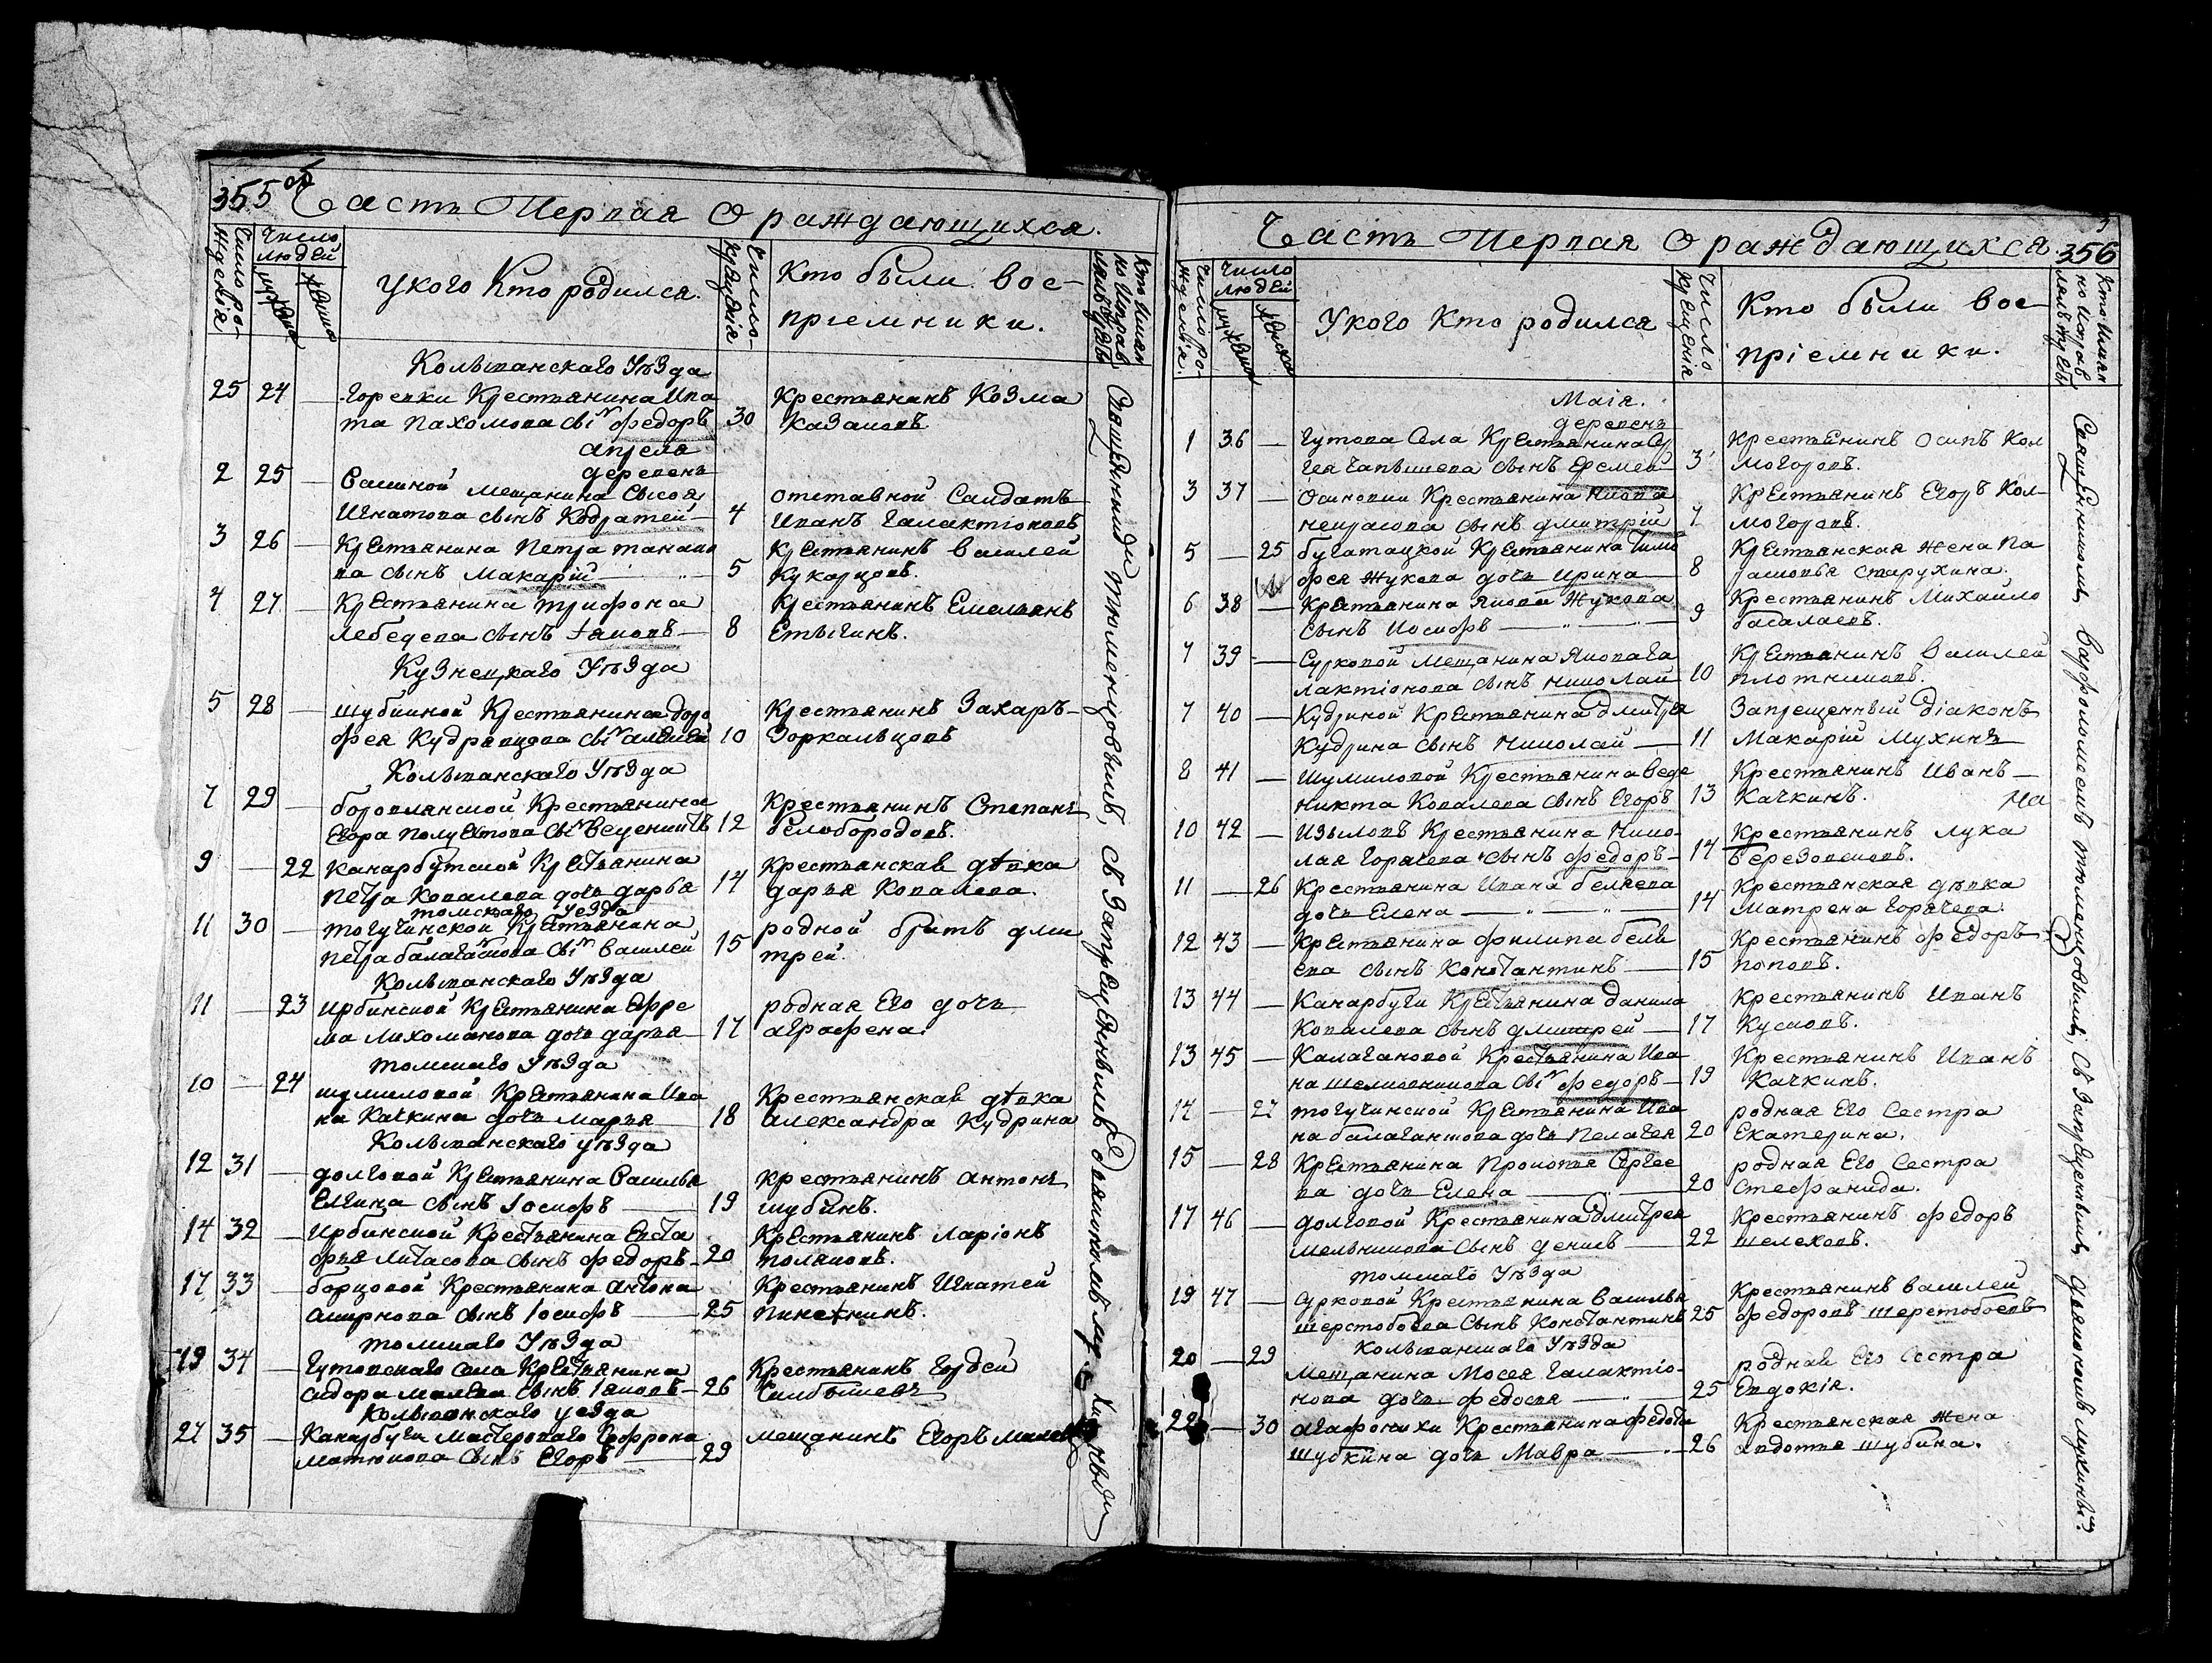 355 об
Часть Перпая О раждающихся.
Число рожденія
Число людей
мужска
женска
У кого Кто родился.
Число крещенія
Кто были вос-
пріемники.
Колыванскаго Уѣзда
25 24 — Горепки Крестьянина Ипа
та Пахомопа сынъ федоръ 30
Крестьянинъ Козма
Казанопъ
апреля
деревень
2 25 — мещанина Сысоя
Игнатопа сынъ Кодратей — 4
отставной Салдатъ
Ипанъ Галактіонопъ
3 26 — Крестьянина Петра
па сынъ Макарій — 5
Крестьянинъ василей
Кукарцопъ.
4 27 — Крестьянина трифона
лебедепа сынъ Iякопъ — 8
Крестьянинъ Емельянъ
Етыгинъ.
Кузнецкаго Уѣзда
5 28 — шубкиной Крестьянина Доро
фея Кудряпцопа сынъ алексей 10
Крестьянинъ Захаръ
Зоркальцопъ
Колыванскаго Уѣзда
7 29 — бороплянской Крестьянина
Егора Полуектопа сынъ 12
Крестьянинъ Степанъ
белобородопъ.
9 — 22 Канарбугской Крестьянина
Петра Копалепа дочь дарья 14
Крестьянская дѣпка
дарья Копалепа.
томскаго уезда
11 30 — тогучинской Крестьянина
Петра балаганскопа сынъ василей 15
родной братъ дми
трей.
Колыванскаго Уѣзда
11 — 23 Ирбинской Крестьянина Ефре
ма Лихоманопа дочь дарья 17
родная Его дочь
аграфена.
томскаго Уѣзда
10 — 24 шумилопой Крестьянина Ипа
на Качкина дочь марья 18
Крестьянская дѣпка
александра Кудрина
Колыванскаго уѣзда
12 31 — долгопой Крестьянина Василья
Елгина сынъ Iосифъ — 19
крестьянинъ антонъ
шубинъ.
14 32 — Ирбинской Крестьянина Еста
фья Литасопа сынъ федоръ — 20
Крестьянинъ Ларіонъ
полякопъ.
17 33 — борцопой Крестьянина антона
смирнопа сынъ Iосифъ — 25
Крестьянинъ Игнатей
томскаго Уѣзда
19 34 — Гутопскаго села Крестьянина
сидора сынъ Iякопъ — 26
Крестьянинъ Гордей
Колыванскаго уезда
27 35 — Канарбуги Мастеропаго Софрона
матюкопа сынъ Егоръ — 29
мещанинъ Егоръ
Священникъ тюменцовымъ, съ запрещеннымъ
356
Часть Перпая О раждающихся
Число рожденія.
Число людей
мужска
женска
У кого Кто родился
Число крещенія
Кто были вос-
пріемники.
Маія.
деревень
1 36 — Гутопа Села Крестьянина Сер
гея сынъ Еремей 3
Крестьянинъ Осипъ Кол
могоропъ.
3 37 — Осинопки Крестьянина Якопа
некрасопа сынъ дмитрій 7
Крестьянинъ Егоръ Кол-
могоропъ.
5 — 25 бугатацкой Крестьянина Тимо
фея Жукопа дочь Ирина 8
Крестьянская жена Па
раскопья Старухина.
6 38 — Крестьянина Якопа Жукопа
сынъ Иосифъ — 9
Крестьянинъ Михайло
басалаепъ.
7 39 — Суркопой Мещанина Якопа Га
лактіонопа сынъ николай 10
Крестьянинъ василей
плотникопъ.
7 40 — Кудриной Крестьянина дмитрея
Кудрина сынъ Николай — 11
Запрещенный діаконъ
Макарій Мухинъ
8 41 — Шумилопой Крестьянина Веде
никта Копалепа сынъ Егоръ 13
Крестьянинъ Иванъ —
Качкинъ.
10 42 — Изылопъ Крестьянина Нико-
лая Горячепа сынъ федоръ — 14
Крестьянинъ лука
березопскопъ.
11 — 26 Крестьянина Ипана беляепа
дочь Елена — 14
Крестьянская дѣпка
Матрена Горячепа.
12 43 — Крестьянина Филипа беля
епа сынъ Константинъ — 15
Крестьянинъ федоръ
попопъ.
13 44 — Канарбуги Крестьянина данила
Копалепа сынъ дмитрей — 17
Крестьянинъ Ипанъ
Кускопъ.
13 45 — Калагапопой Крестьянина Ипа
на шелкопникопа сынъ федоръ — 19
Крестьянинъ Ипанъ
Качкинъ.
14 — 27 тогучинской Крестьянина Ипа
на балаганскопа дочь Пелагея 20
родная Его Сестра
Екатерина.
15 — 28 Крестьянина Прокопья Сергее
па дочь Елена — 20
родная Его Сестра
Стефанида.
17 46 — долгопой Крестьянина Дмитрея
Мельникопа Сынъ денисъ — 22
Крестьянинъ федоръ
шелехопъ.
томскаго Уѣзда
19 47 — суркопой Крестьянина василья
шерстобоепа Сынъ Константинъ 25
Крестьянинъ василей
федоропъ шерстобоепъ
Колыванскаго Уѣзда
20 — 29 Мещанина Мосея Галактіо-
нопа дочь федосья — 25
родная Его Сестра
Епдокія.
22 — 30 агафонихи Крестьянина федота
шубкина дочь Мавра — 26
Крестьянская жена
апдотья шубина.
Священникомъ Варфоломеемъ тюменцовымъ, съ Запрещеннымъ дьякономъ мухинымъ.